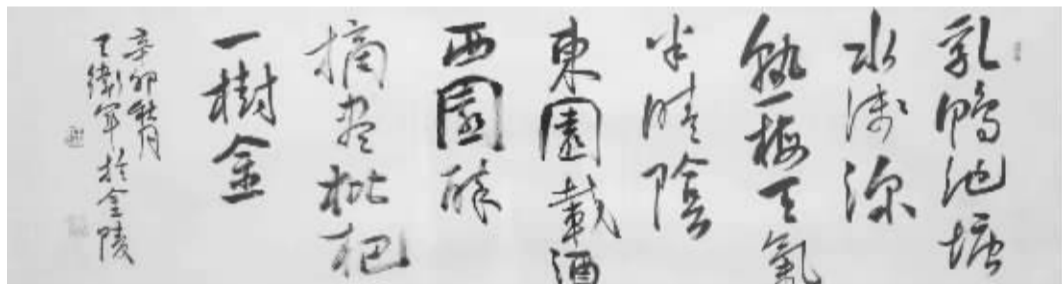 乳鴨池塘
水浅深
熟梅天氣
半晴陰
東園載酒
西園醉
摘尽枇杷
一樹金
辛卯秋月
軍於金陵